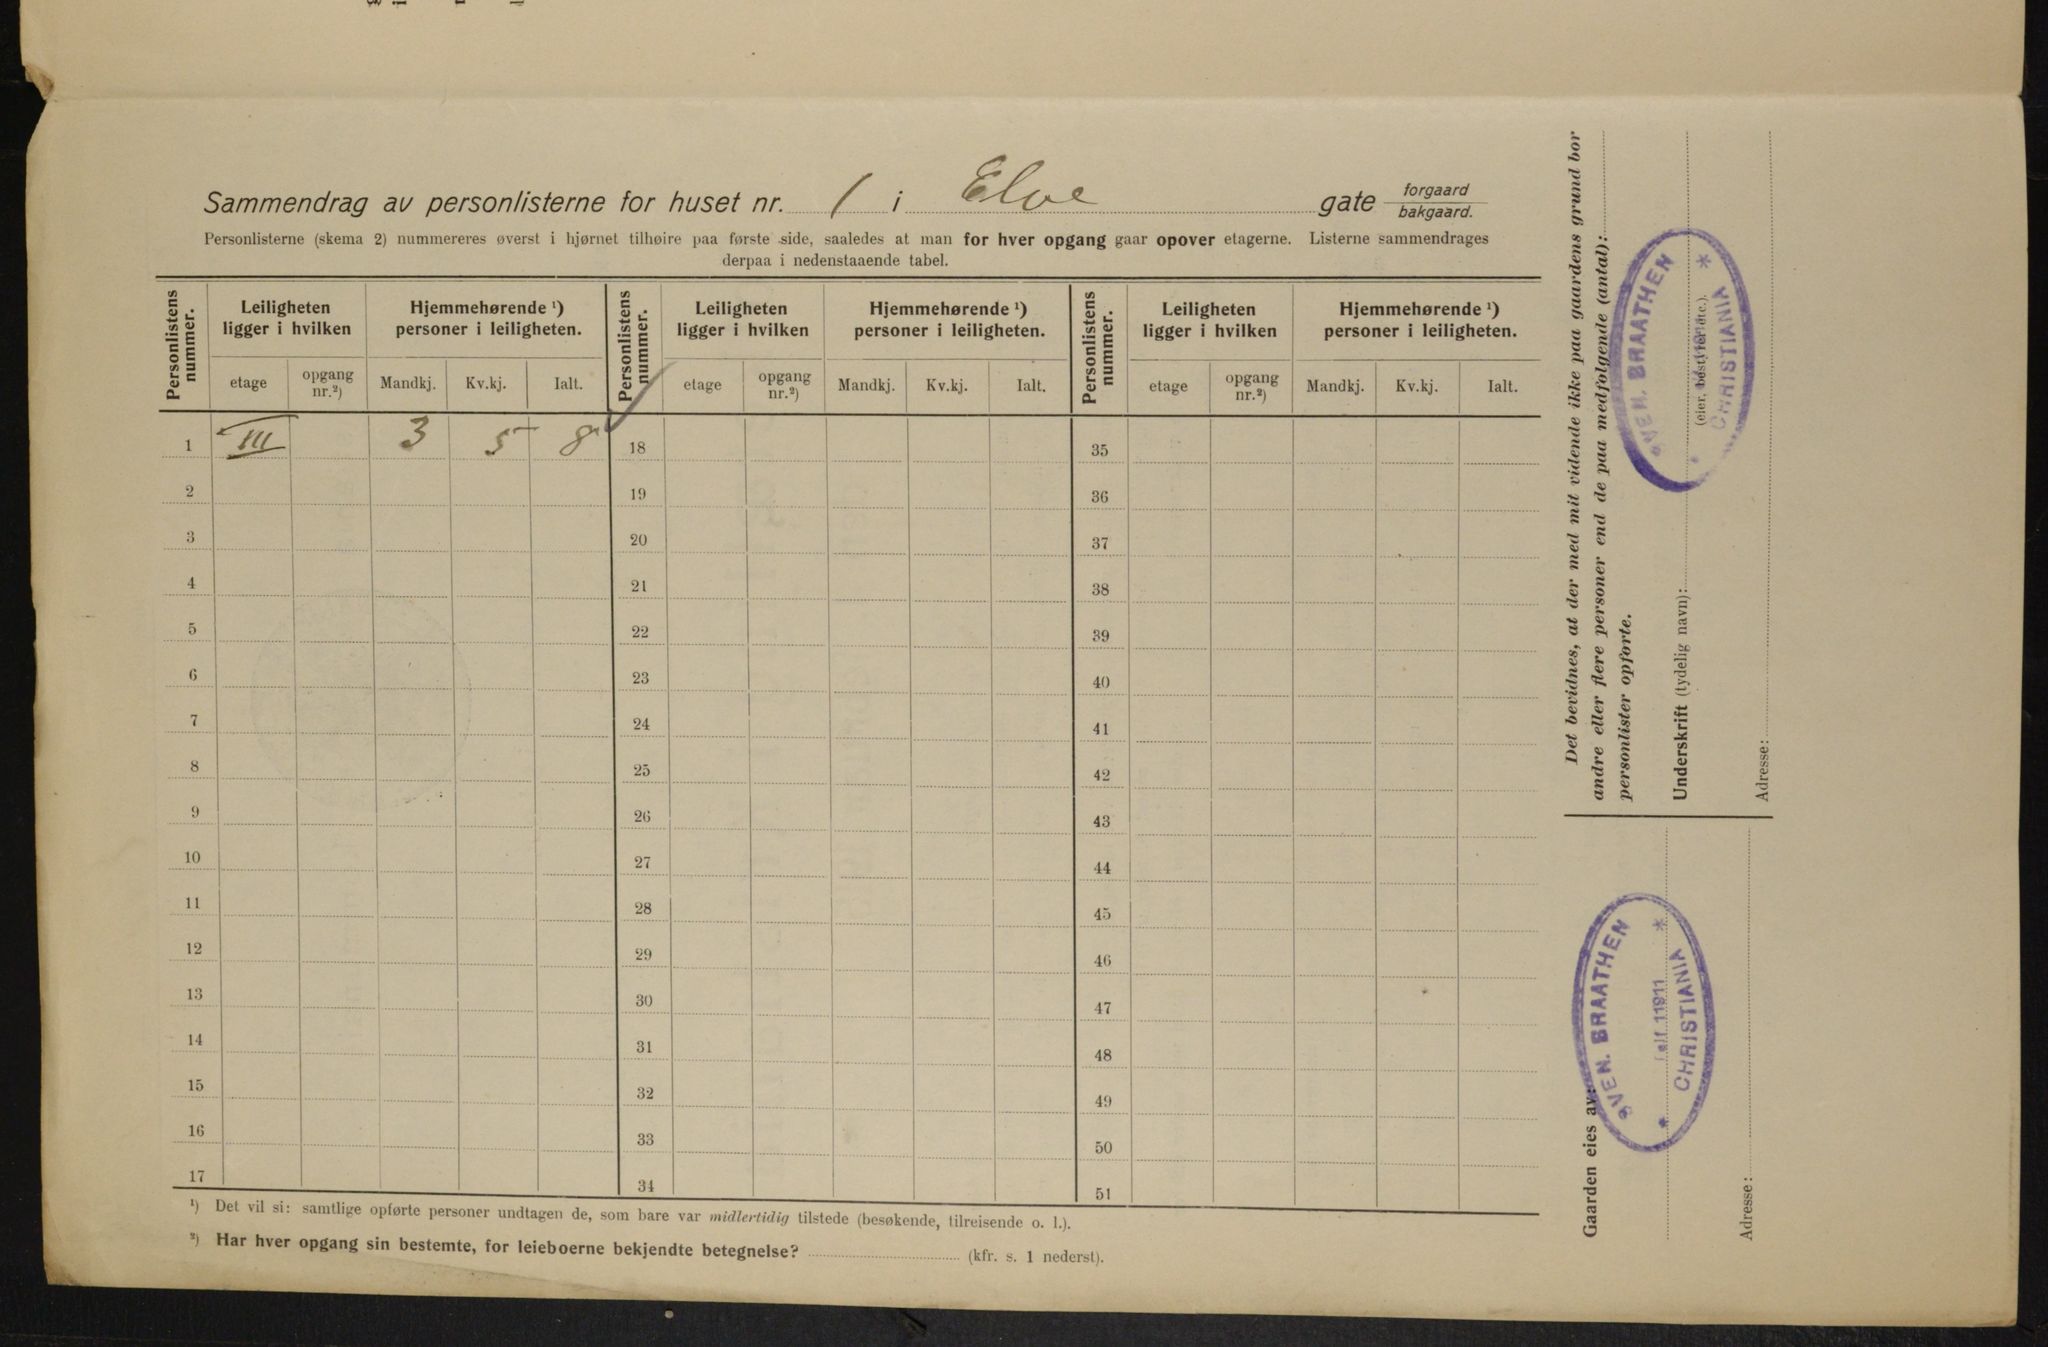 Sammendrag av personlisterne for huset nr. 1 i Elve gate forgaard / bakgaard.
Personlisterne (skema 2) nummereres øverst i hjørnet tilhøire paa første side, saaledes at man for hver opgang gaar opover etagerne. Listerne sammendrages
derpaa i nedenstaaende tabel.
Personlistens nummer. Leiligheten ligger i hvilken Hjemmehørende ¹) personer i leiligheten. Personlistens nummer. Leiligheten ligger i hvilken Hjemmehørende ¹) personer i leiligheten. Personlistens nummer. Leiligheten ligger i hvilken Hjemmehørende ¹) personer i leiligheten.
etage opgang nr.²) Mandkj. Kv.kj. Ialt. etage opgang nr.²) Mandkj. Kv.kj. Ialt. etage opgang nr.²) Mandkj. Kv.kj. Ialt.
1 III 3 5 8 18 35
2 19 36
3 20 37
4 21 38
5 22 39
6 23 40
7 24 41
8 25 42
9 26 43
10 27 44
11 28 45
12 29 46
13 30 47
14 31 48
15 32 49
16 33 50
17 34 51
¹) Det vil si: samtlige opførte personer undtagen de, som bare var midlertidig tilstede (besøkende, tilreisende o. l.).
²) Har hver opgang sin bestemte, for leieboerne bekjendte betegnelse? (kfr. s. 1 nederst).
Det bevidnes, at der med mit vidende ikke paa gaardens grund bor
andre eller flere personer end de paa medfølgende (antal):
personlister opførte.
Underskrift (tydelig navn):
(eier, bestyrer etc.).
Adresse:
SVEN. BRAATHEN
CHRISTIANIA
Gaarden eies av:
Adresse:
SVEN. BRAATHEN
Telf 11911
CHRISTIANIA